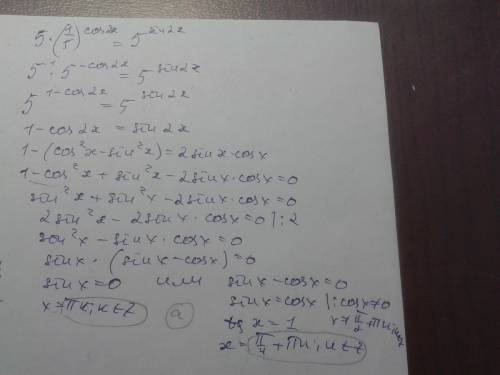 5 · (1/5)^cos2x = 5^sin2x
5^1 · 5^-cos2x = 5^sin2x
5^1-cos2x = 5^sin2x
1-cos2x = sin2x
1-(cos²x-sin²x) = 2sinx·cosx
1-cos²x + sin²x - 2sinx·cosx = 0
sin²x + sin²x - 2sinx·cosx = 0
2sin²x - 2sinx·cosx = 0 |:2
sin²x - sinx·cosx = 0
sinx · (sinx-cosx) = 0
sinx = 0 или sinx-cosx = 0
sinx = cosx |:cosx≠0
x = πk; k∈Z
а
tg x = 1
x≠π/2+πn; n∈Z
x = π/4 + πn; n∈Z